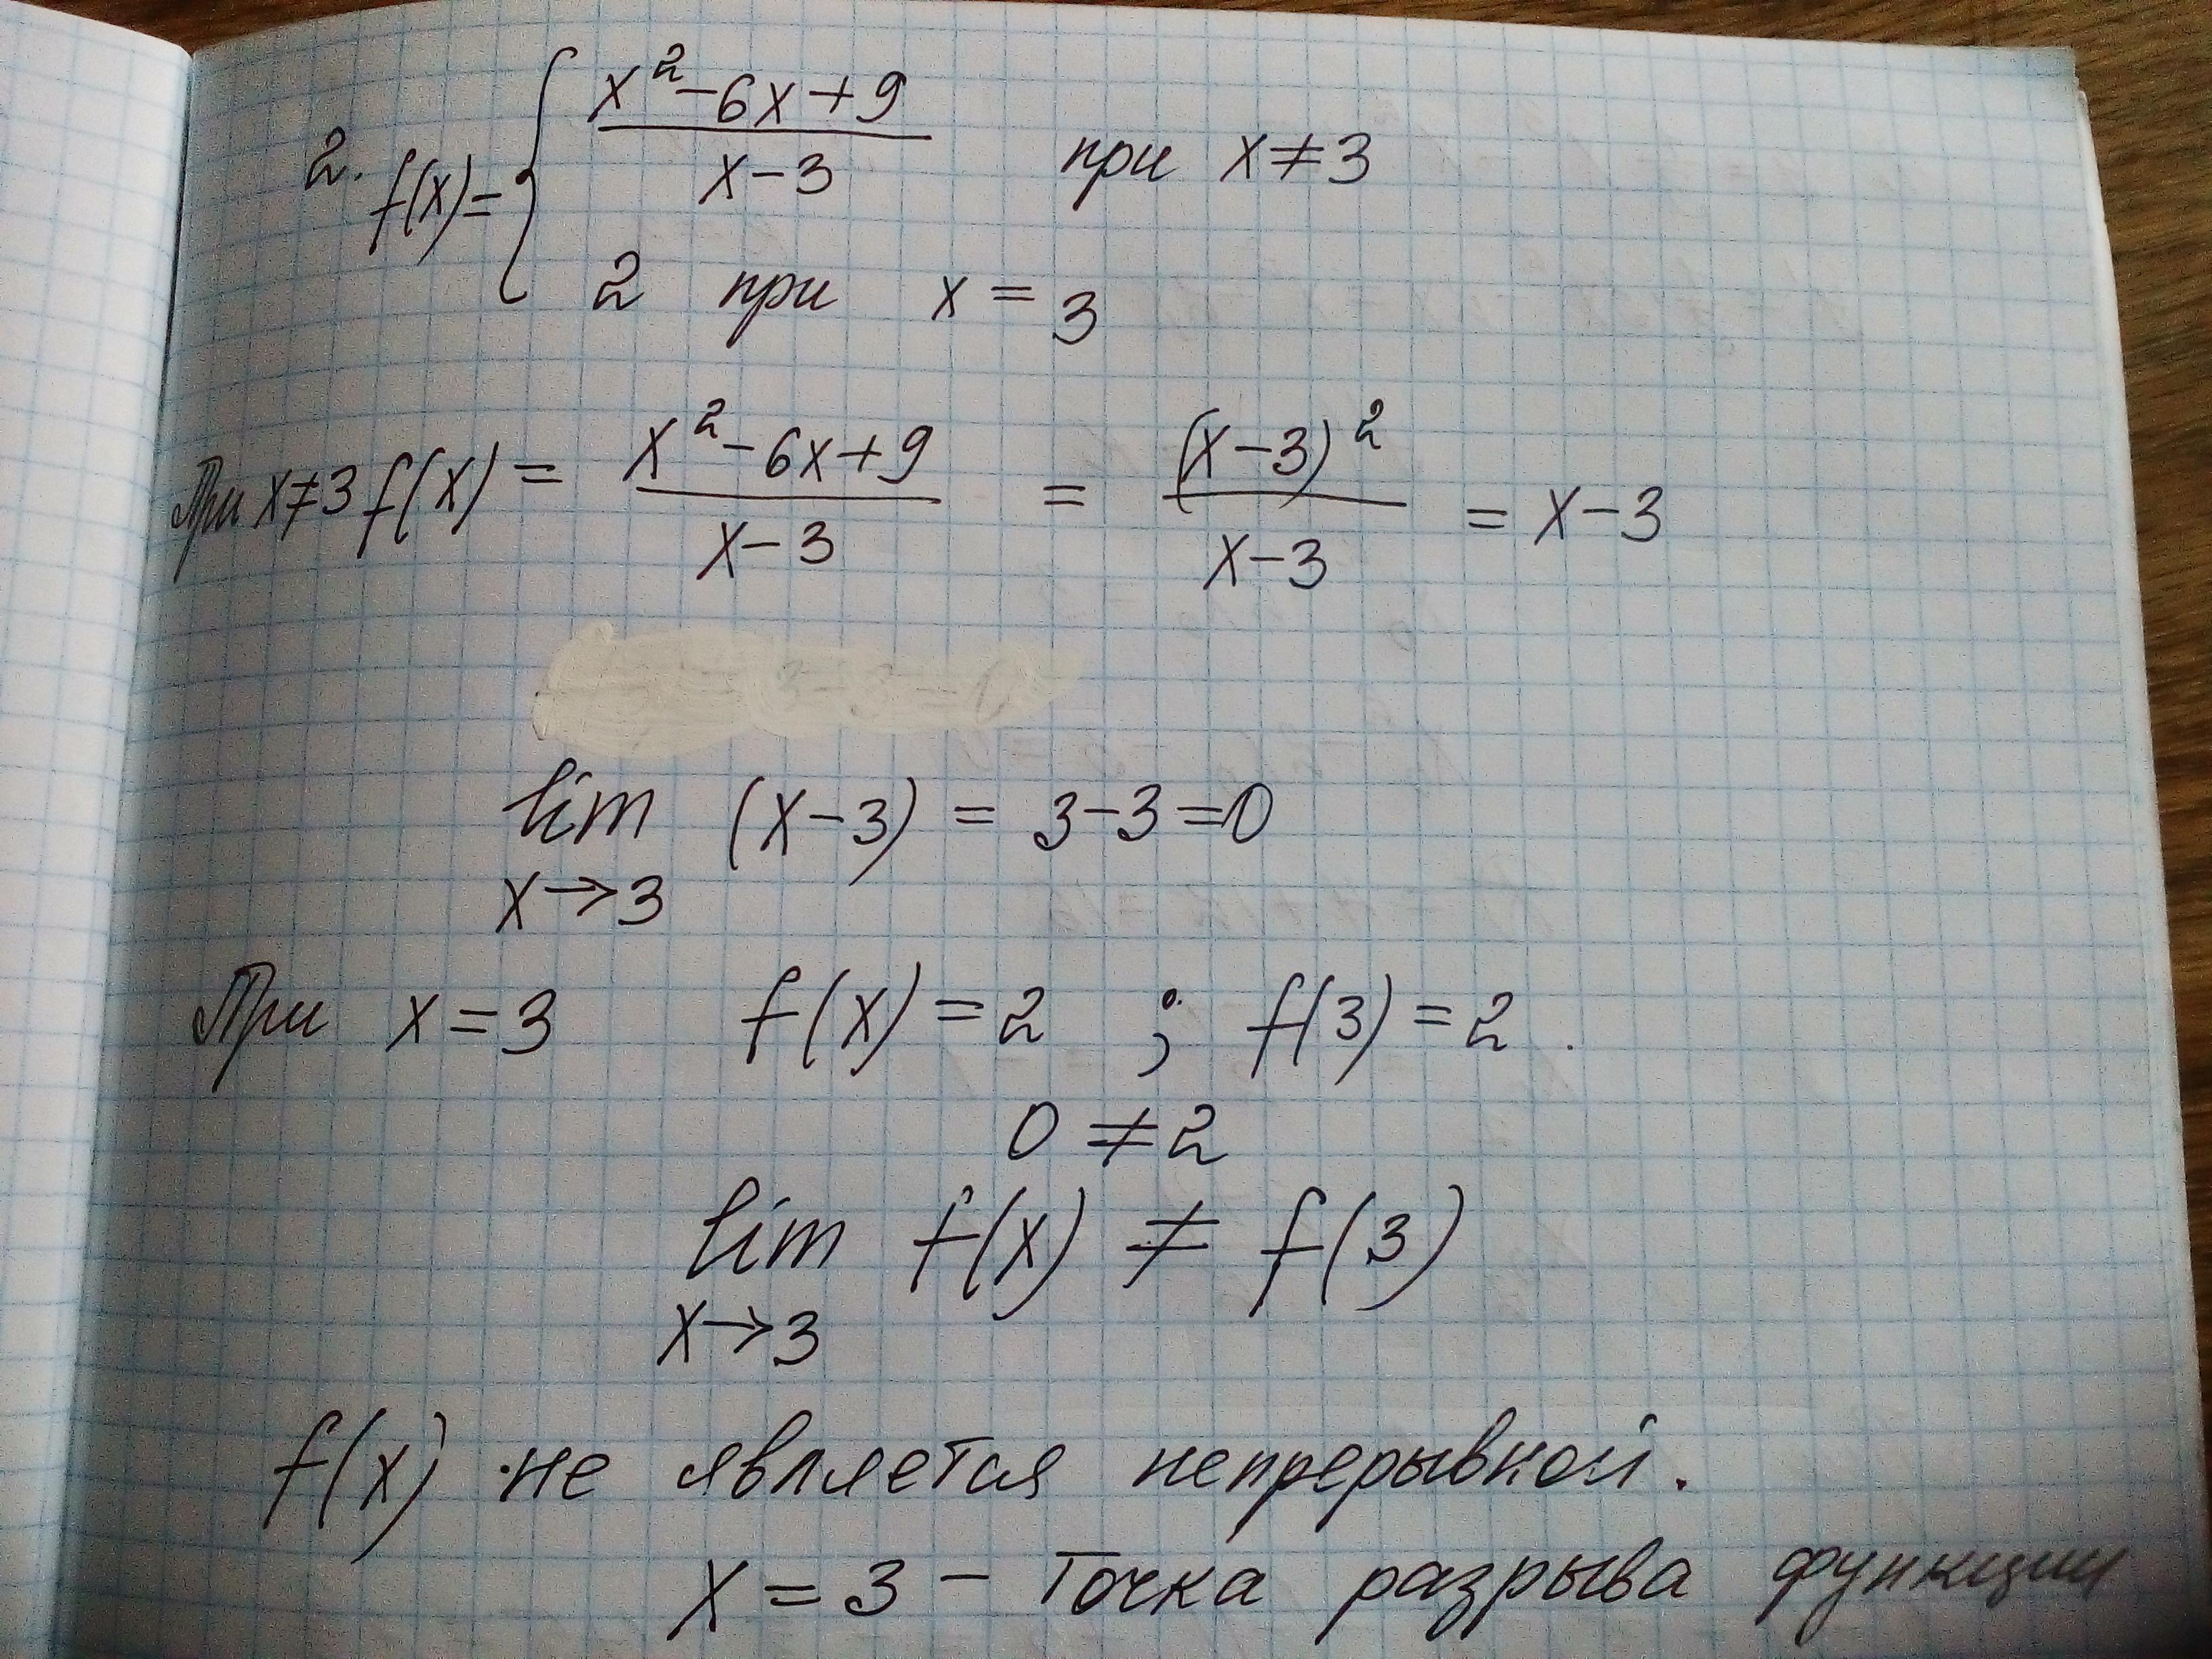 2. f(x) = { (x² - 6x + 9) / (x - 3) при x ≠ 3
2 при x = 3
При x ≠ 3 f(x) = (x² - 6x + 9) / (x - 3) = (x - 3)² / (x - 3) = x - 3
3 - 3 = 0
lim (x - 3) = 3 - 3 = 0
x → 3
При x = 3 f(x) = 2 ; f(3) = 2 .
0 ≠ 2
lim f(x) ≠ f(3)
x → 3
f(x) не является непрерывной.
x = 3 - точка разрыва функции